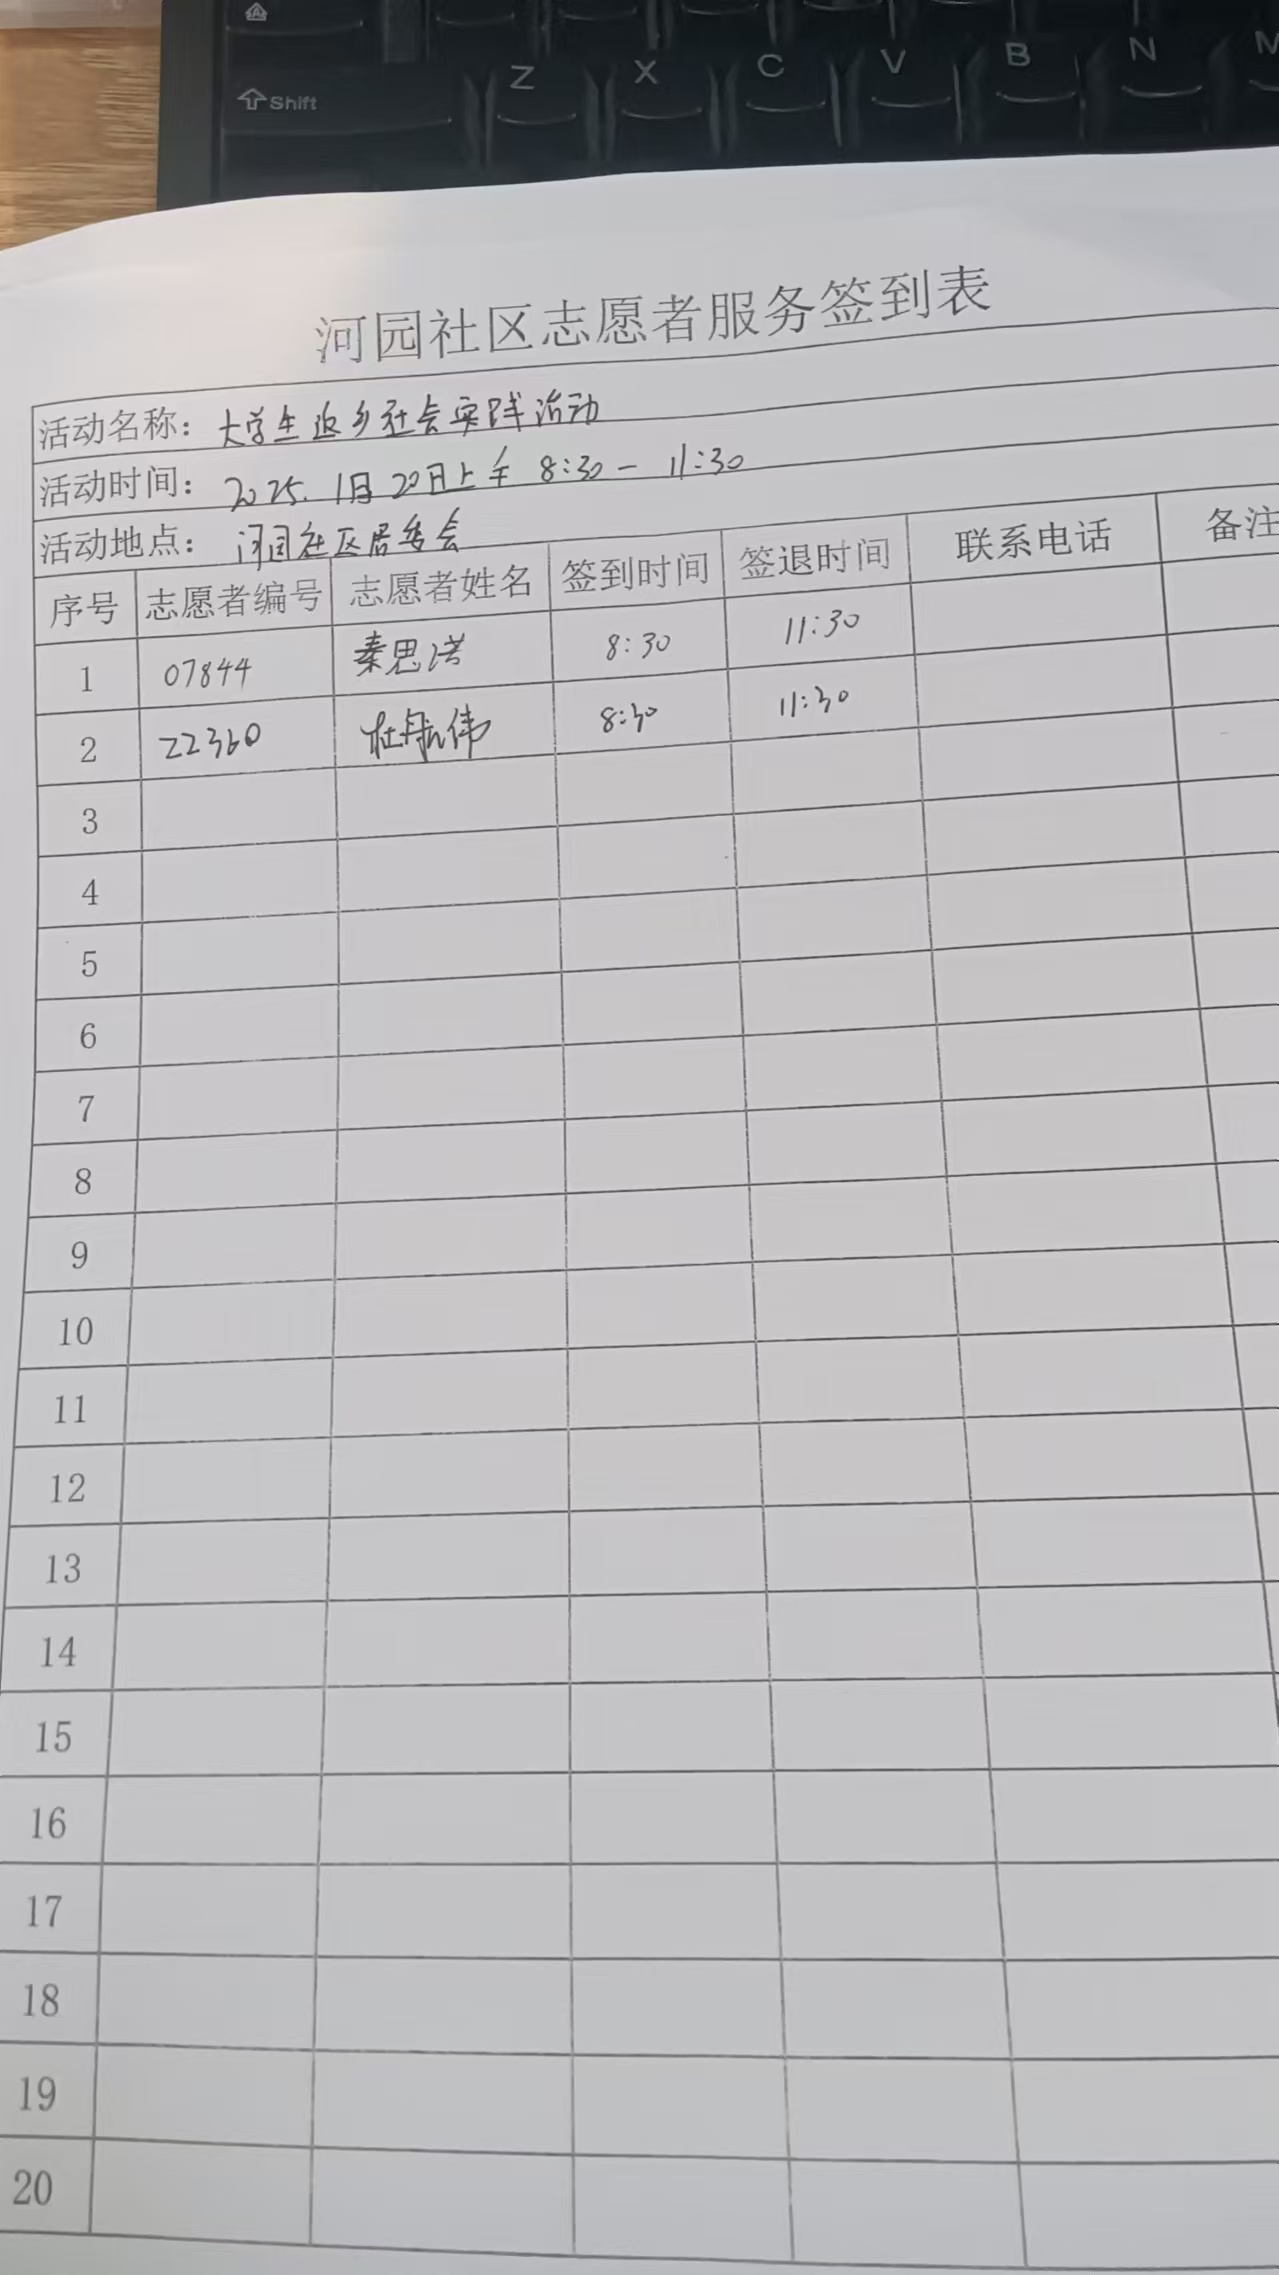 Shift Z X C V B N M
河园社区志愿者服务签到表
活动名称：大学生返乡社会实践活动
活动时间：2025.1月20日上午 8:30-11:30
活动地点：河园社区居委会
序号 志愿者编号 志愿者姓名 签到时间 签退时间 联系电话 备注
1 07844 秦思洪 8:30 11:30
2 22360 杜航伟 8:30 11:30
3
4
5
6
7
8
9
10
11
12
13
14
15
16
17
18
19
20